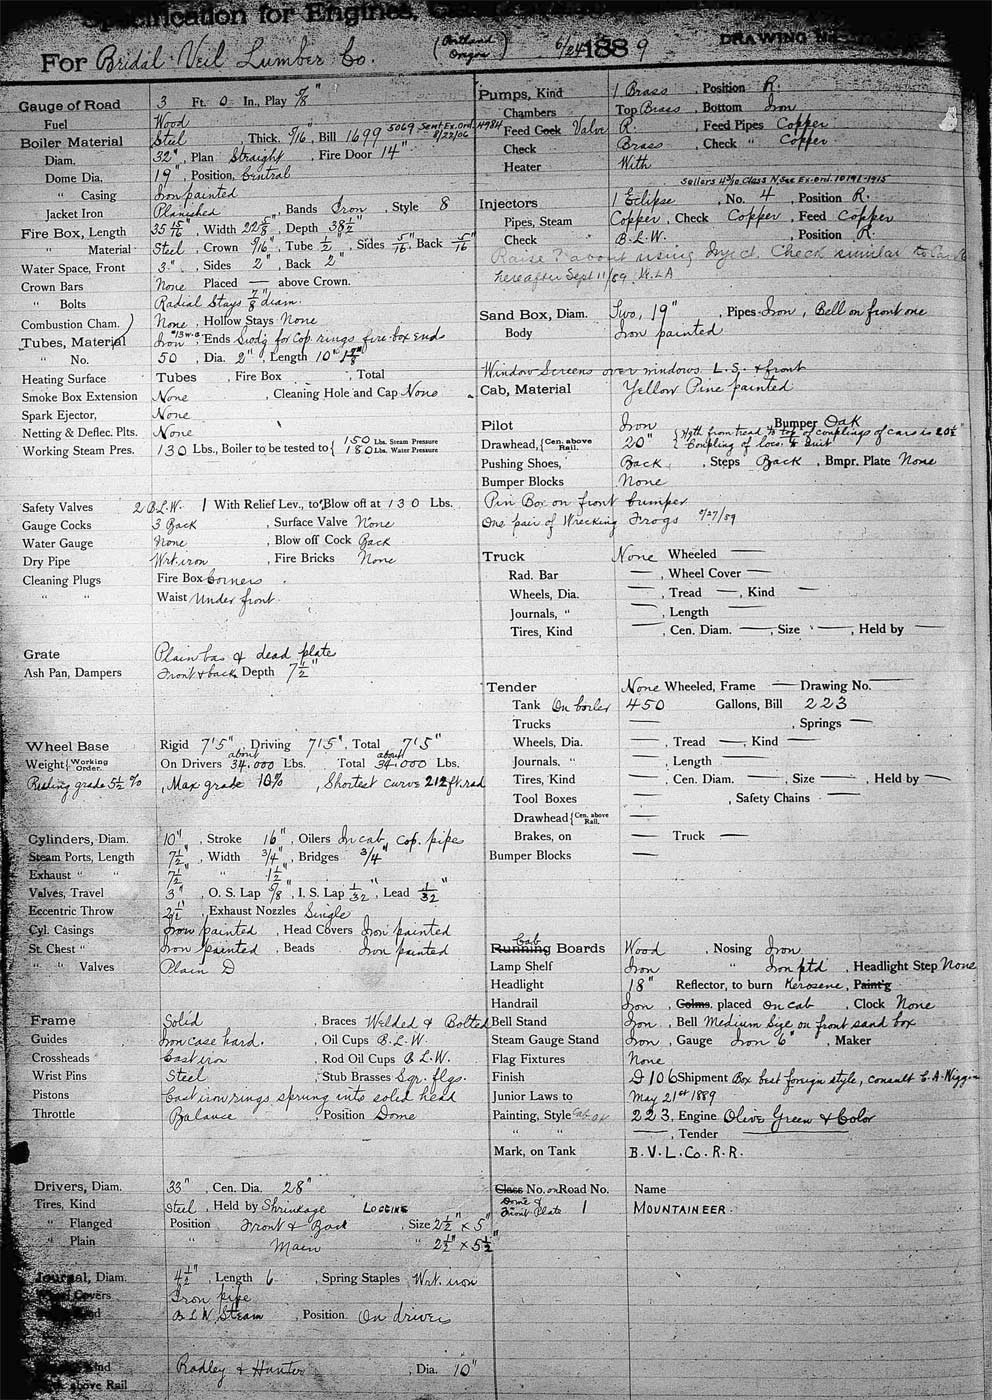 Specification for Engines,
DRAWING No.
For Bridal Veil Lumber Co. (Portland Oregon) 6/24 1889
Gauge of Road 3 Ft. 0 In., Play 5/8"
Fuel Wood
Boiler Material Steel, Thick. 5/16", Bill 1699 5069 Sent Ex. Ord. 4984 8/22/06
Diam. 32", Plan Straight, Fire Door 14"
Dome Dia. 19", Position, Central
" Casing Iron painted
Jacket Iron Planished, Bands Iron, Style 8
Fire Box, Length 35 1/16", Width 22 5/8", Depth 38 1/2"
" Material Steel, Crown 5/16", Tube 1/2", Sides 5/16", Back 5/16"
Water Space, Front 3", Sides 2", Back 2"
Crown Bars None Placed — above Crown.
" Bolts Radial Stays 7/8" diam.
Combustion Cham. None, Hollow Stays None
Tubes, Material Iron #13 w.g., Ends Swdg for Cop. rings fire-box ends
" No. 50, Dia. 2", Length 10'
Heating Surface Tubes , Fire Box , Total
Smoke Box Extension None , Cleaning Hole and Cap None
Spark Ejector, None
Netting & Deflec. Plts. None
Working Steam Pres. 130 Lbs., Boiler to be tested to { 150 Lbs. Steam Pressure 180 Lbs. Water Pressure
Safety Valves 2 B.L.W. 1 With Relief Lev., to Blow off at 130 Lbs.
Gauge Cocks 3 Back , Surface Valve None
Water Gauge None , Blow off Cock Back
Dry Pipe Wrt. iron , Fire Bricks None
Cleaning Plugs Fire Box Corners
" " Waist Under front
Grate Plain bas & dead plate
Ash Pan, Dampers Front & back Depth 7 1/2"
Wheel Base Rigid 7'5", Driving 7'5", Total 7'5"
Weight { Working Order. On Drivers about 34,000 Lbs. Total about 34,000 Lbs.
Ruling grade 5 1/2 %, Max grade 10%, Shortest curve 212 ft. rad
Cylinders, Diam. 10", Stroke 16", Oilers In cab, cop. pipes
Steam Ports, Length 7 1/2", Width 3/4", Bridges 3/4"
Exhaust " " 7 1/2" " 1 1/2"
Valves, Travel 3", O. S. Lap 5/8", I. S. Lap 1/32", Lead 1/32"
Eccentric Throw 2 1/2", Exhaust Nozzles Single
Cyl. Casings Iron painted, Head Covers Iron painted
St. Chest " Iron painted, Beads Iron painted
" " Valves Plain D
Frame Solid , Braces Welded & Bolted
Guides Iron case hard. , Oil Cups B.L.W.
Crossheads Cast iron , Rod Oil Cups B.L.W.
Wrist Pins Steel , Stub Brasses Sqr. flgs.
Pistons Cast iron rings sprung into solid head
Throttle Balance , Position Dome
Drivers, Diam. 33", Cen. Dia. 28"
Tires, Kind Steel, Held by Shrinkage
" Flanged Position Front & Back , Size 2 1/2" x 5"
" Plain " Main " 2 1/2" x 5 1/2"
Journal, Diam. 4 1/2", Length 6 , Spring Staples Wrt. iron
Covers Iron pipe
B L W Steam , Position. On drivers
Kind Radley & Hunter , Dia. 10"
above Rail
Pumps, Kind 1 Brass , Position R.
Chambers Top Brass, Bottom Iron
Feed Cock Valve R. , Feed Pipes Copper
Check Brass , Check " Copper
Heater With
Sellers 4 3/10 Class N. See Ex. ord. 10191-1915
Injectors 1 Eclipse , No. 4 , Position R.
Pipes, Steam Copper, Check Copper, Feed Copper
Check B.L.W. , Position R.
Raise ? about using Inject. Check similar to
hereafter Sept 11/89
Sand Box, Diam. Two, 19" , Pipes Iron, Bell on front one
Body Iron painted
Window Screens over windows L.S. & front
Cab, Material Yellow Pine painted
Pilot Iron Bumper Oak
Drawhead, { Cen. above Rail. 20" { Hgth from tread to top of couplings of cars is 20 1/2" Coupling of loco. to suit
Pushing Shoes, Back , Steps Back , Bmpr. Plate None
Bumper Blocks None
Pin Box on front bumper
One pair of Wrecking Frogs 8/27/89
Truck None Wheeled —
Rad. Bar — , Wheel Cover —
Wheels, Dia. — , Tread —, Kind —
Journals, " — , Length —
Tires, Kind — , Cen. Diam. —, Size —, Held by —
Tender None Wheeled, Frame — Drawing No. —
Tank On boiler 450 Gallons, Bill 223
Trucks — , Springs —
Wheels, Dia. — , Tread —, Kind —
Journals. " — , Length —
Tires, Kind — , Cen. Diam. —, Size —, Held by —
Tool Boxes — , Safety Chains —
Drawhead { Cen. above Rail. —
Brakes, on — Truck —
Bumper Blocks —
Running Cab Boards Wood , Nosing Iron
Lamp Shelf Iron " Iron ptd , Headlight Step None
Headlight 18" Reflector, to burn Kerosene, Paint'g
Handrail Iron , Colms. placed on cab , Clock None
Bell Stand Iron , Bell Medium Size on front sand box
Steam Gauge Stand Iron , Gauge Iron 6" , Maker
Flag Fixtures None
Finish D 106 Shipment Box best foreign style, consult C. A. Wiggin
Junior Laws to May 21st 1889
Painting, Style 223. Engine Olive Green & Color
" " — , Tender —
Mark, on Tank B.V.L.Co.R.R.
Class No. on Road No. Name
Dome & Front Plate 1 MOUNTAINEER.